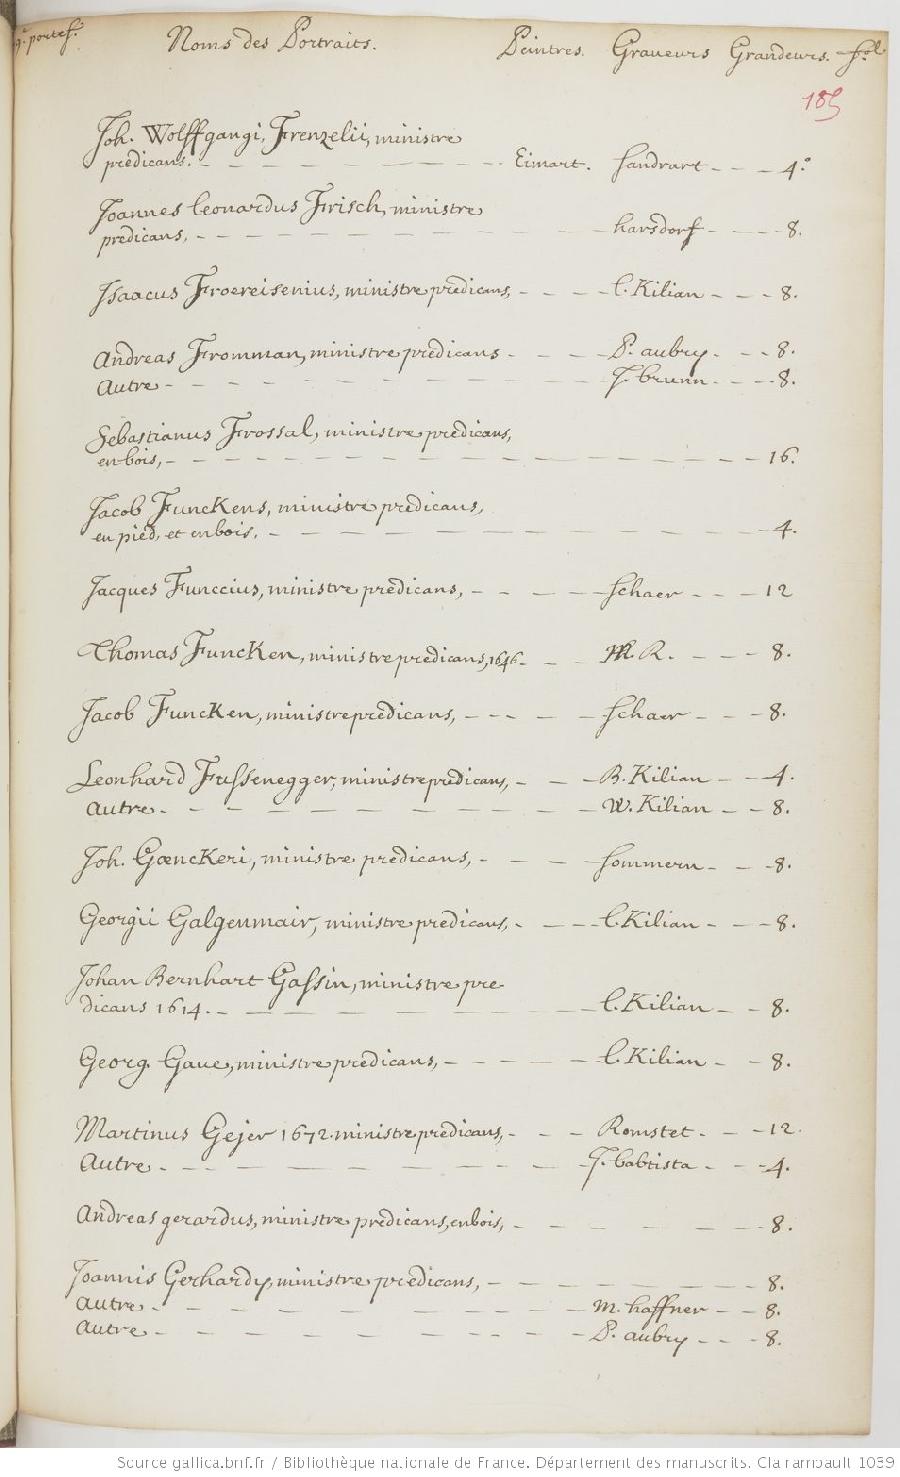 9.e portef. Noms des Portraits. Peintres. Graveurs Grandeurs. fol
185
Joh. Wolffgangi, Frenzelii, ministre
predicans. Eimart. Sandrart 4.o
Joannes Leonardus Frisch, ministre
predicans, harsdorf 8.
Isaacus Froereisenius, ministre predicans, l. Kilian 8.
Andreas Fromman, ministre predicans P. aubry 8.
Autre J. brunn 8.
Sebastianus Frossal, ministre predicans,
en bois, 16.
Jacob Funckens, ministre predicans,
en pied, et en bois, 4.
Jacques Funccius, ministre predicans, Schaer 12
Thomas Funcken, ministre predicans, 1646 M. R. 8.
Jacob Funcken, ministre predicans, Schaer 8.
Leonhard Fussenegger, ministre predicans, B. Kilian 4.
Autre W. Kilian 8.
Joh. Gœnckeri, ministre predicans, Sommern 8.
Georgii Galgenmair, ministre predicans, l. Kilian 8.
Johan Bernhart Gassin, ministre pre
dicans 1614. l. Kilian 8.
Georg. Gaue, ministre predicans, l. Kilian 8.
Martinus Gejer 1672. ministre predicans, Romstet. 12.
Autre J. babtista 4.
Andreas gerardus, ministre predicans, en bois, 8.
Joannis Gerhardy, ministre predicans, 8.
Autre M. haffner 8.
Autre P. aubry 8.
Source gallica.bnf.fr / Bibliothèque nationale de France. Département des manuscrits. Clairambault 1039